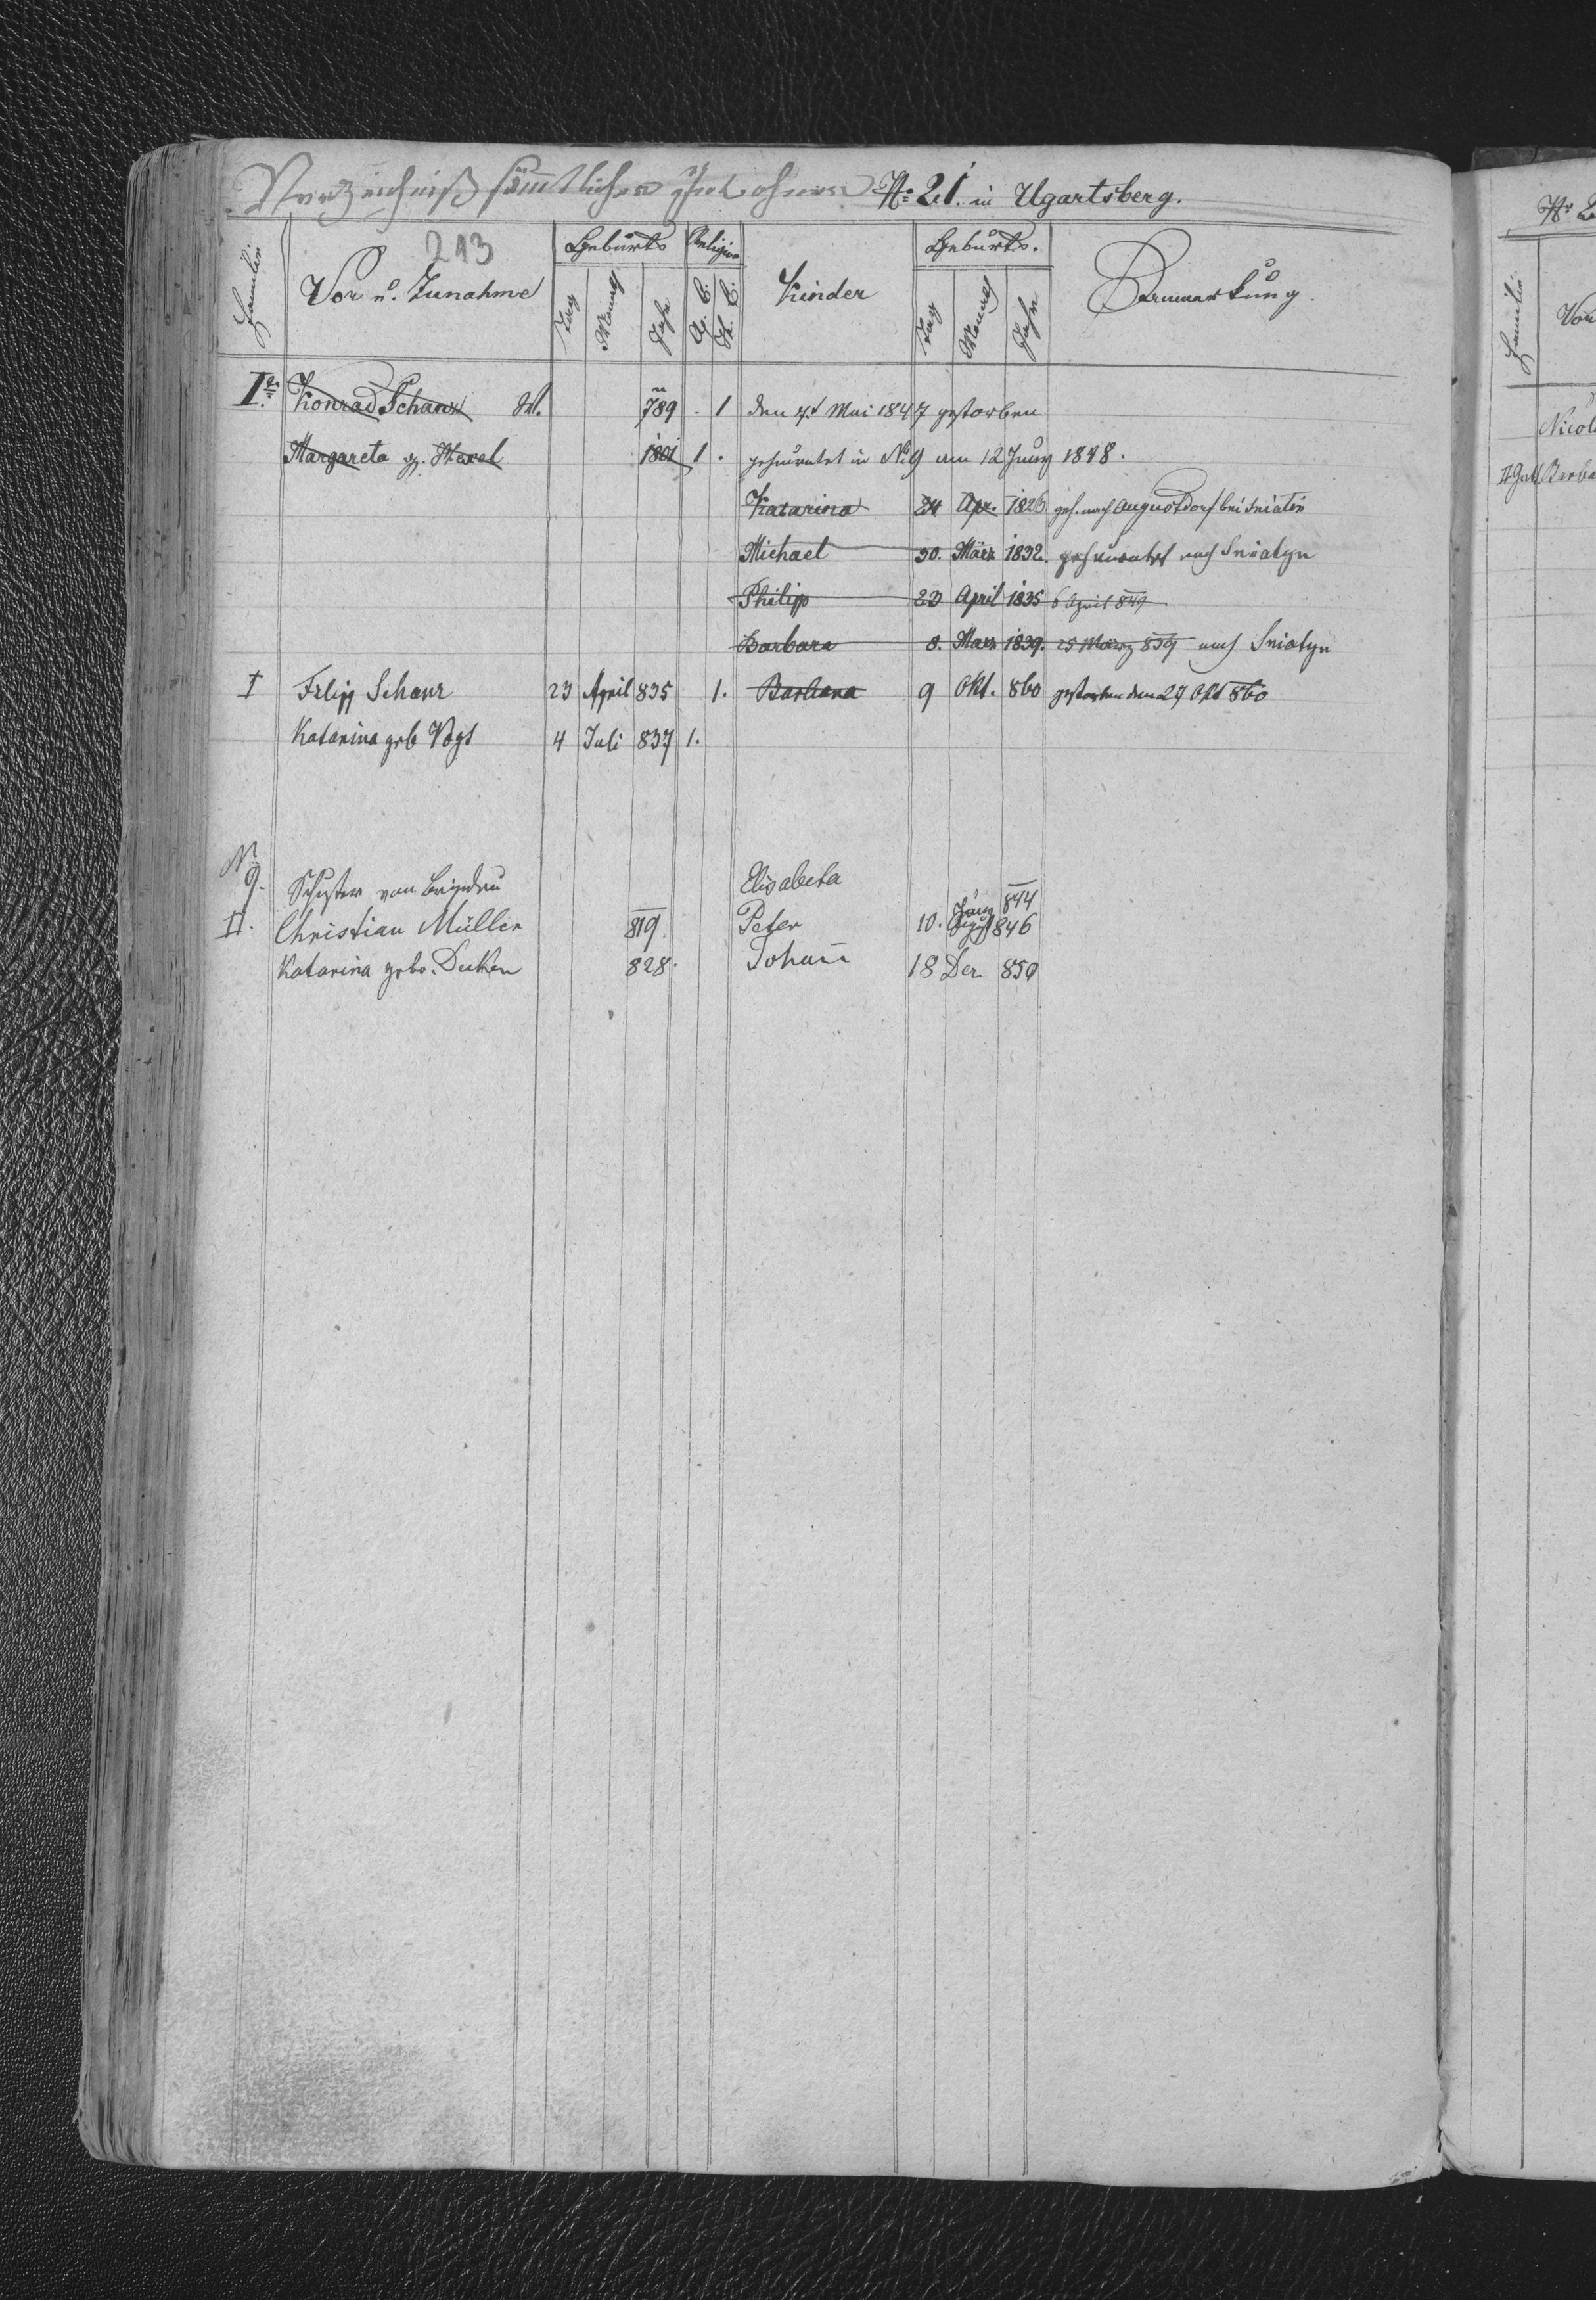 Verzeichniß sämtlicher Inwohner No 21. in Ugartsberg.
213
Familie Vor u. Zunahme Geburts Religion Kinder Geburts. Anmerkung
Tag Monat Jahr A. C. H. C. Tag Monat Jahr
I. Konrad Schanz 789 . 1 den 7. Mai 1847 gestorben
Margareta g. 1801 1 . geheuratet in No 9 am 12 1848.
Katarina 24 Apr. 1826 geh. nach Augustdorf bei Sniatin
Michael 30. März 1832. geheuratet nach Sniatyn
Philipp 23 April 1835 6 April 849
Barbara 8. März 1839. 25 März 859 nach Sniatyn
I Filipp Schanz 23 April 835 1. Barbara 9 Okt. 860 gestorben den 27 Okt 860
Katarina geb Vogt 4 Juli 837 1.
No
9. Schuster von Elisabeta 844
II. Christian Müller 819 Peter 10. 846
Katarina gebo. 828. Johann 18 Dez 850
No 2
Familie Vor
Nicol
II Barba